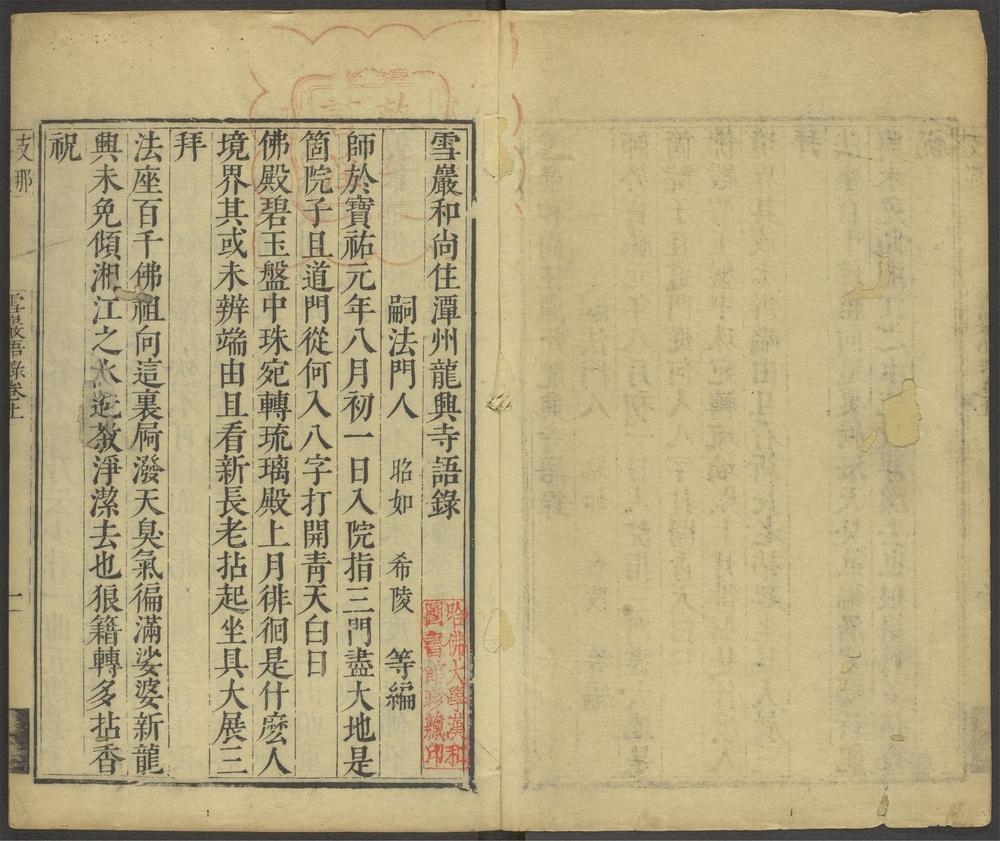 雪巖和尚住潭州龍興寺語錄
嗣法門人 昭如 希陵 等編
師於寶祐元年八月初一日入院指三門盡大地是
箇院子且道門從何入八字打開青天白日
佛殿碧玉盤中珠宛轉琉璃殿上月徘徊是什麽人
境界其或未辨端由且看新長老拈起坐具大展三
拜
法座百千佛祖向這裏屙潑天臭氣徧滿娑婆新龍
興未免傾湘江之水造教淨潔去也狼籍轉多拈香
祝
支那
雪巖語錄卷上
一
哈佛大學漢和
圖書館珍藏印